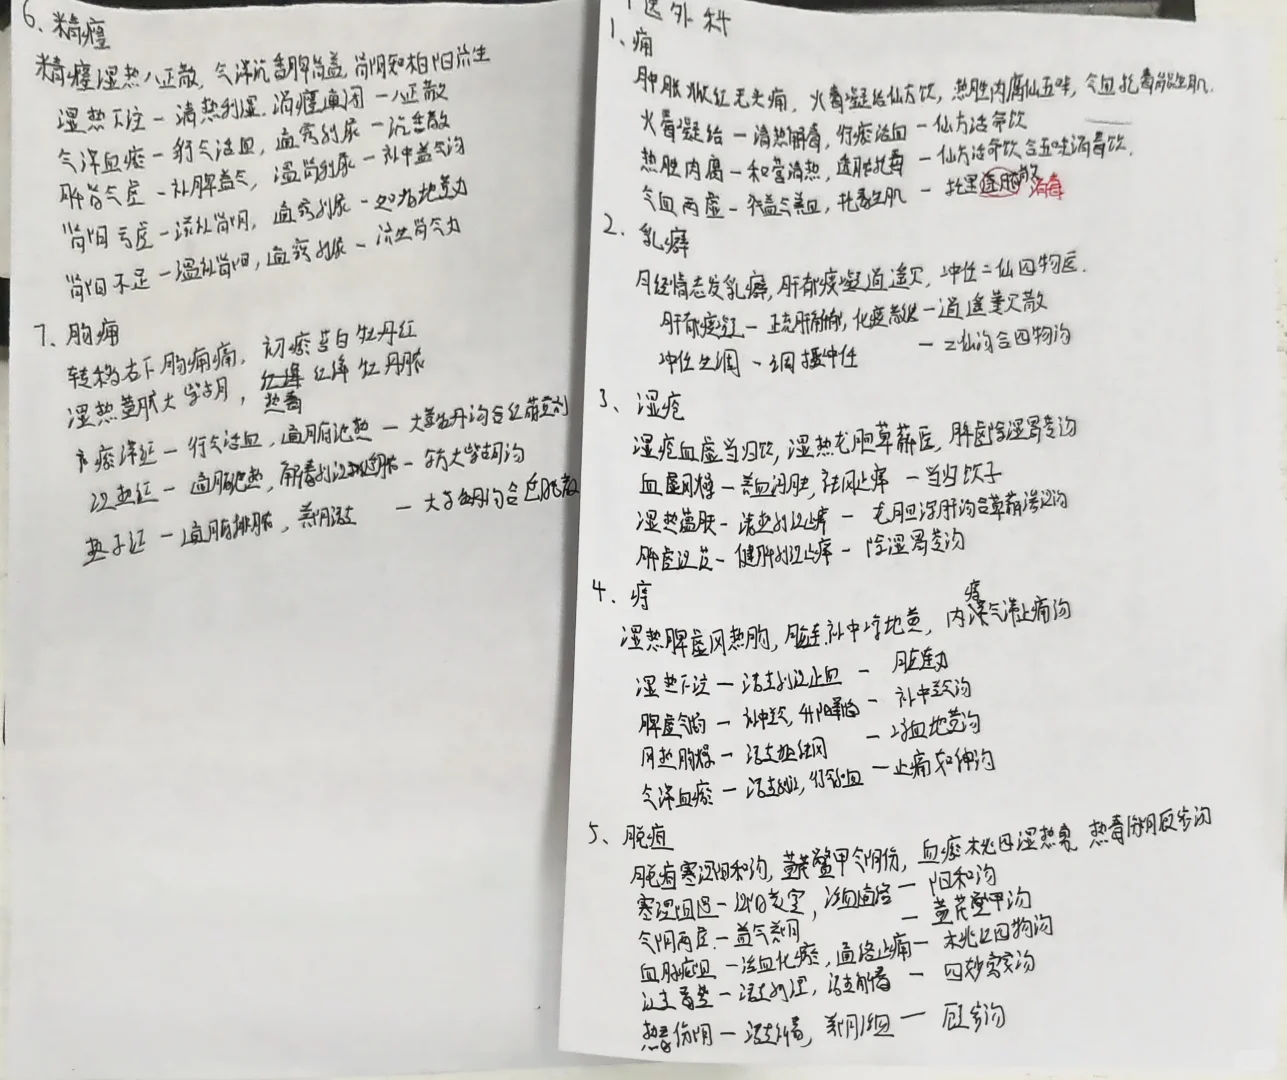 中医外科
1、痈
肿胀焮红无头痈，火毒凝结仙方饮，热胜肉腐仙五味，气血托毒能生肌.
火毒凝结－清热解毒，行瘀活血－仙方活命饮
热胜肉腐－和营清热，透脓托毒－仙方活命饮合五味消毒饮.
气血两虚－补益气血，托毒生肌－托里透脓散 消毒
2、乳癖
月经情志发乳癖，肝郁痰凝逍遥灭，冲任二仙四物医.
肝郁痰凝－疏肝解郁，化痰散结－逍遥蒌贝散
冲任失调－调摄冲任－二仙汤合四物汤
3、湿疮
湿疮血虚当归饮，湿热龙胆萆薢医，脾虚除湿胃苓汤
血虚风燥－养血润肤，祛风止痒－当归饮子
湿热蕴肤－清热利湿止痒－龙胆泻肝汤合萆薢渗湿汤
脾虚湿蕴－健脾利湿止痒－除湿胃苓汤
4、痔
湿热脾虚风热肠，脏连补中凉地黄，内痔气滞止痛汤
湿热下注－清热利湿止血－脏连丸
脾虚气陷－补中益气，升阳举陷－补中益气汤
风热肠燥－清热祛风－凉血地黄汤
气滞血瘀－清热利湿，行气活血－止痛如神汤
5、脱疽
脱疽寒湿阳和汤，黄芪鳖甲气阴伤，血瘀桃四湿热寡，热毒伤阴顾步汤
寒湿阻遏－温阳散寒，活血通络－阳和汤
气阴两虚－益气养阴－黄芪鳖甲汤
血脉瘀阻－活血化瘀，通络止痛－桃红四物汤
湿热毒盛－清热利湿，清热解毒－四妙勇安汤
热毒伤阴－清热解毒，养阴活血－顾步汤
6、精癃
精癃湿热八正散，气滞沉香脾肾益，肾阴知柏阳济生
湿热下注－清热利湿，消癃通闭－八正散
气滞血瘀－行气活血，通窍利尿－沉香散
脾肾气虚－补脾益气，温肾利尿－补中益气汤
肾阴亏虚－滋补肾阴，通窍利尿－知柏地黄丸
肾阳不足－温补肾阳，通窍利尿－济生肾气丸
7、肠痈
转移右下肠痈痛，初瘀苦白牡丹红
湿热黄脓大柴胡，热毒红绛牡丹脓
瘀滞证－行气活血，通腑泄热－大黄牡丹汤合红藤煎剂
湿热证－通腑泄热，解毒利湿透脓－大柴胡汤
热毒证－通腑排脓，养阴清热－大黄牡丹汤合透脓散